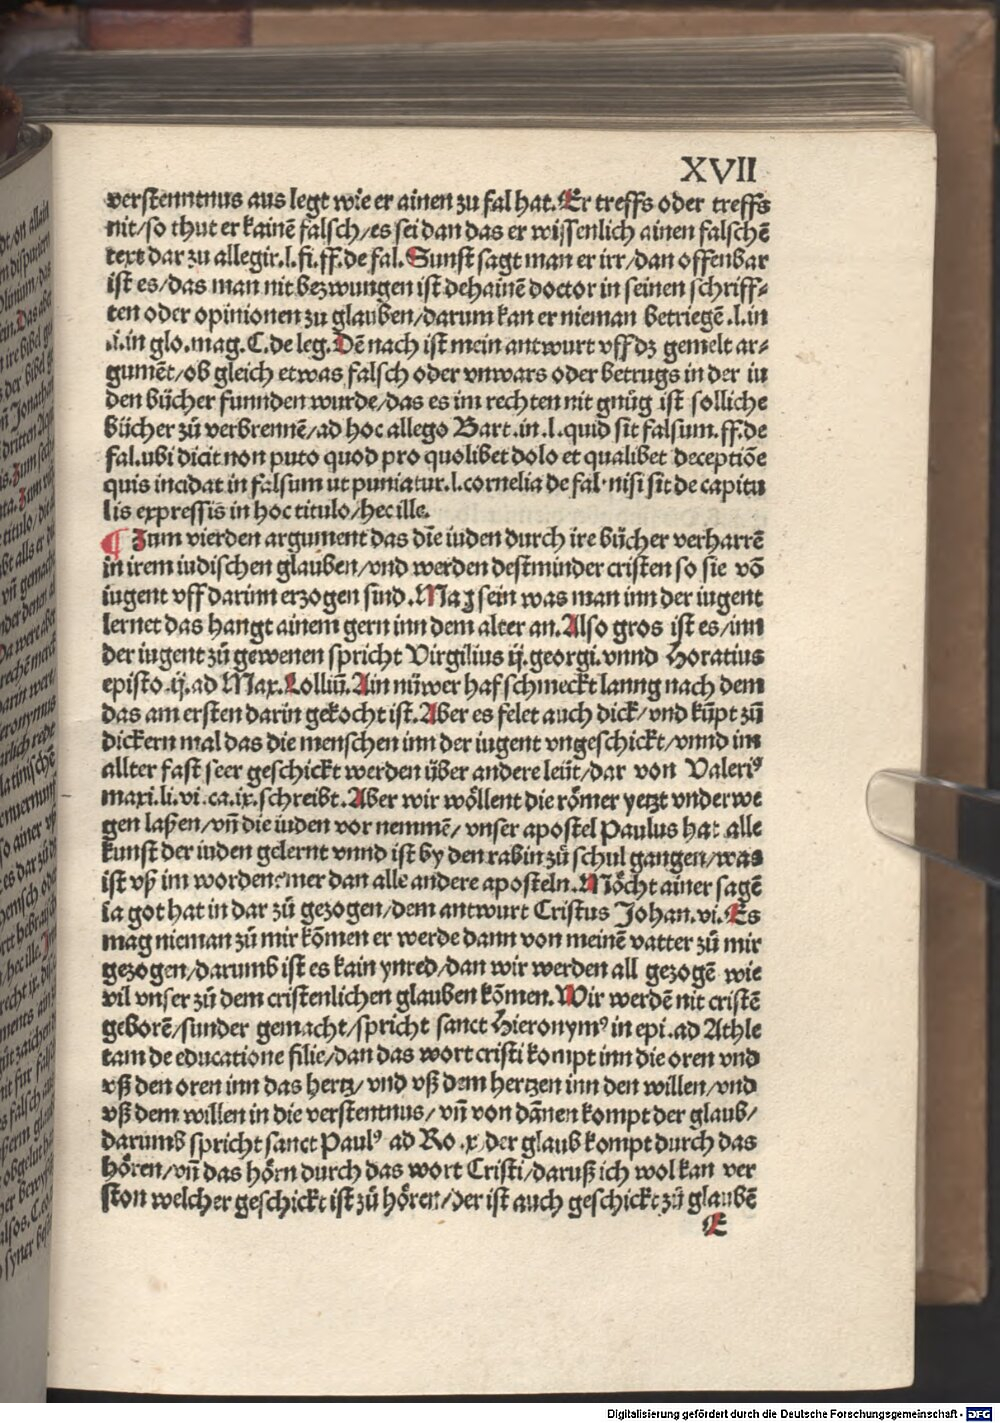 XVII
verstenntnus aus legt wie er ainen zu fal hat. Er treffs oder treffs
nit/so thut er kainē falsch/es sei dan das er wissenlich ainen falschē
text dar zu allegir.l.fi.ff.de fal. Sunst sagt man er irr/dan offenbar
ist es/das man nit bezwungen ist dehainē doctor in seinen schriff⸗
ten oder opinionen zu glauben/darum kan er nieman betriegē.l.in
.i.in glo.mag.C.de leg. Dē nach ist mein antwurt vff dz gemelt ar⸗
gumēt/ob gleich etwas falsch oder vnwars oder betrugs in der iu
den bücher funnden wurde/das es im rechten nit gnůg ist solliche
bücher zů verbrennē/ad hoc allego Bart.in.l.quid sit falsum.ff.de
fal.ubi dicit non puto quod pro quolibet dolo et qualibet deceptiōe
quis incidat in falsum ut puniatur.l.cornelia de fal·nisi sit de capitu
lis expressis in hoc titulo/hec ille.
¶ Zum vierden argument das die iuden durch ire bücher verharrē
in irem iudischen glauben/vnd werden destminder cristen so sie vō
iugent vff darinn erzogen sind. Mag sein was man inn der iugent
lernet das hangt ainem gern inn dem alter an. Also gros ist es/inn
der iugent zů gewenen spricht Virgilius ij.georgi.vnnd Horatius
episto.ij.ad Max.Lolliū. Ain nüwer haf schmeckt lanng nach dem
das am ersten darin gekocht ist. Aber es felet auch dick/vnd kūpt zů
dickern mal das die menschen inn der iugent vngeschickt/vnnd im
allter fast seer geschickt werden über andere leüt/dar von Valeriꝰ
maxi.li.vi.ca.ix.schreibt. Aber wir wöllent die römer yetzt vnderwe
gen laßen/vn̄ die iuden vor nemmē/vnser apostel Paulus hat alle
kunst der iuden gelernt vnnd ist by den rabin zů schul gangen/was
ist vß im worden: mer dan alle andere aposteln. Möcht ainer sagē
ia got hat in dar zů gezogen/dem antwurt Cristus Johan.vi. Es
mag nieman zů mir kōmen er werde dann von meinē vatter zů mir
gezogen/darumb ist es kain ynred/dan wir werden all gezogē wie
vil vnser zů dem cristenlichen glauben kōmen. Wir werdē nit cristē
geborē/sunder gemacht/spricht sanct Hieronymꝰ in epi.ad Athle
tam de educatione filie/dan das wort cristi kompt inn die oren vnd
vß den oren inn das hertz/vnd vß dem hertzen inn den willen/vnd
vß dem willen in die verstentnus/vn̄ von dānen kompt der glaub/
darumb spricht sanct Paulꝰ ad Ro.x/der glaub kompt durch das
hören/vn̄ das hörn durch das wort Cristi/daruß ich wol kan ver
ston welcher geschickt ist zů hören/der ist auch geschickt zů glaubē
E
Digitalisierung gefördert durch die Deutsche Forschungsgemeinschaft - DFG